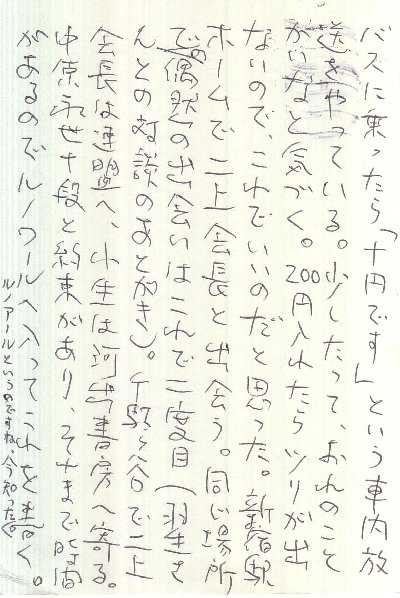 バスに乗ったら「十円です」という車内放
送をやっている。少したって、おれのこと
かいなと気づく。200円入れたらツリが出
ないので、これでいいのだと思った。新宿駅
ホームで二上会長と出会う。同じ場所
での偶然の出会いはこれで二度目(羽生さ
んとの対談のあとがき)。千駄ヶ谷で二上
会長は連盟へ、小生は河出書房へ寄る。
中原永世十段と約束があり、それまで時間
があるのでルノワールへ入ってこれを書く。
ルノアールというのですね、今知った